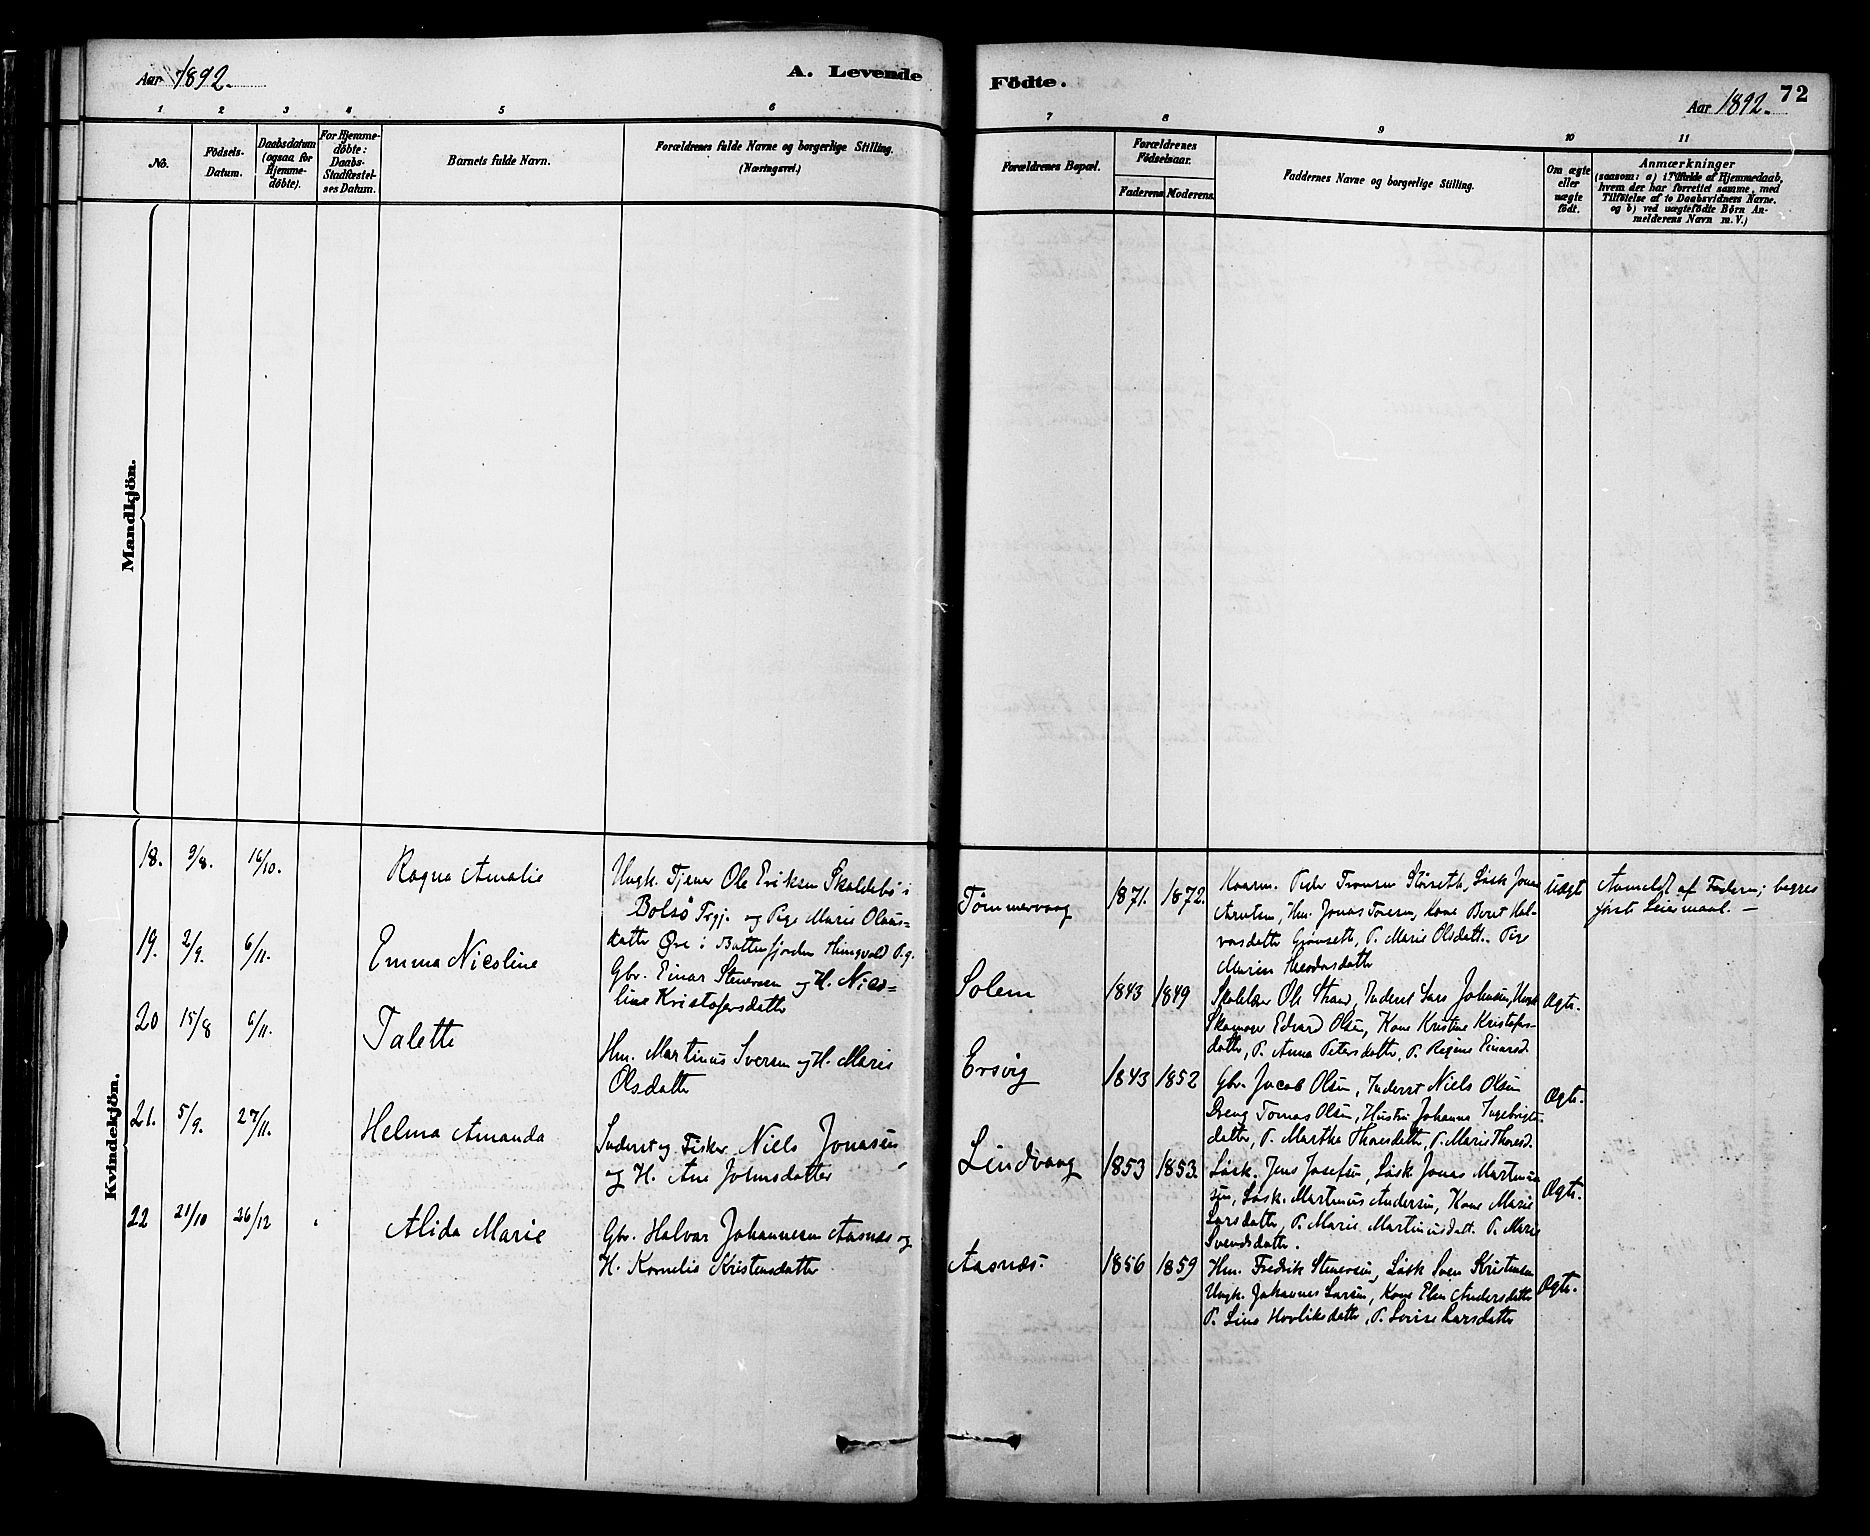 Aar 1892.
A. Levende
Födte.
Aar 1892.
72
1 2 3 4 5 6
7 8 9 10 11
No.
Födsels-
Datum.
Daabsdatum
(ogsaa for
Hjemme-
döbte).
For Hjemme-
döbte:
Daabs-
Stadfæstel-
ses Datum.
Barnets fulde Navn.
Forældrenes fulde Navne og borgerlige Stilling.
(Næringsvei.)
Forældrenes Bopæl.
Forældrenes
Födselsaar.
Faderens Moderens
Faddernes Navne og borgerlige Stilling.
Om ægte
eller
uægte
födt.
Anmærkninger
(saasom: a) i Tilfælde af Hjemmedaab,
hvem der har forrettet samme, med
Tilföielse af to Daabsvidners Navne.
og b) ved uægtefödte Börn An-
melderens Navn m. V.)
Mandkjön.
Kvindekjön.
18. 9/8. 16/10.
Ragna Amalie
Ungk. Tjener Ole Eriksen Skaldebö i
Bolsö Prgj. og Pige Marie Olaus-
datter Öre i Battenfjorden P.g.
Tömmervaag
1871. 1872.
Peder Störseth, Løsk Jonas
Arntsen, Hm. Jonas Toresen, Kone Beret Hal-
vorsdatter Grönseth, P. Marie Olsdatt. Pige
Maren
Uægt
Anmeldt af Faderen; begges
første Leiermaal. —
19. 2/9. 6/11.
Emma Nicoline
Gbr. Einar Stenersen og H. Nico-
line Kristofersdatter
Solem
1843 1849
Ole Strand, Inderst Lars Johnsen, Ungk
Skomager Edvard Olsen, Kone Kristine Kristofers-
datter, P. Anna Petersdatter, P. Regine Einarsd.
Ægte.
20 15/8 6/11.
Talette
Hm. Martinus Iversen og H. Marie
Olsdatter
Ersvig
1843 1852
Gbr. Jacob Olsen, Inderst Niels Olsen
Dreng Tomas Olsen, Hustru Johanna Ingebrigts-
datter, P. Martha Thoresdatter, P. Marie Thoresd.
Ægte.
21. 5/9. 27/11.
Helma Amanda
Inderst og Fisker Niels Jonasen
og H. Ane Johnsdatter
Lindvaag
1853 1853.
Løsk. Jens Josefsen, Løsk Jonas Martinus-
sen, Løsk. Martinus Andersen, Kone Marie
Larsdatter, P. Marie Martinusdatt. P. Marie
Svendsdatter.
Ægte.
22 21/10 26/12
Alida Marie
Gbr. Halvar Johannesen Aasnæs og
H. Kornelia Kristensdatter
Aasnæs.
1856 1859
Hm. Fredrik Stenersen, Løsk Sven Kristensen
Ungk. Johannes Larsen, Kone Elen Andersdatter
P. Lina Hovliksdatter, P. Lovise Larsdatter
Ægte.